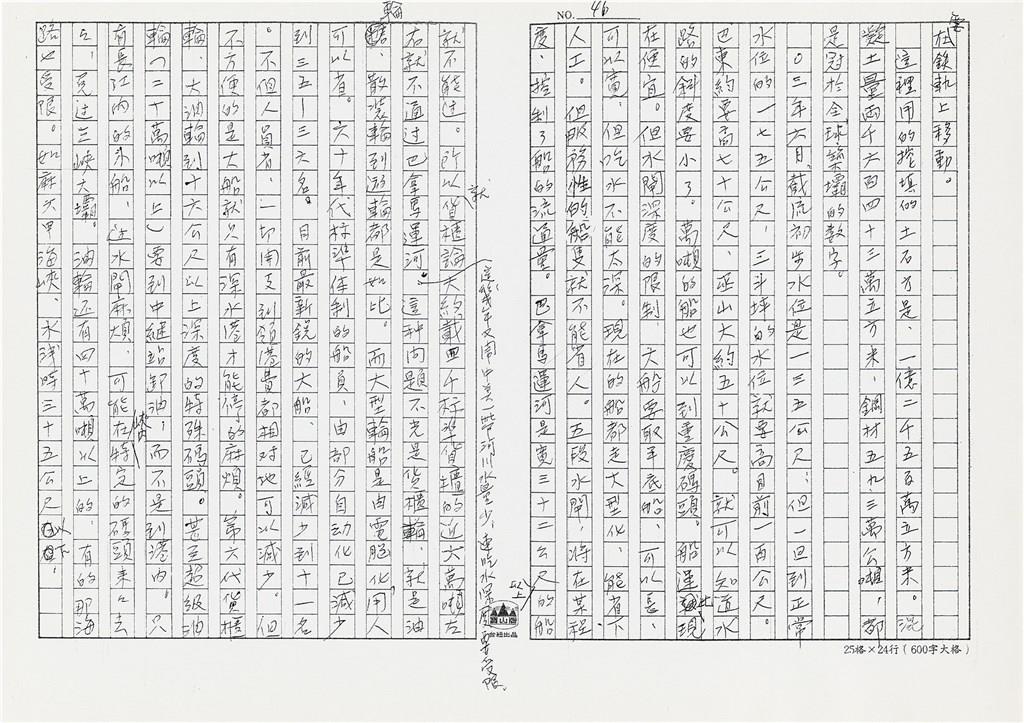 NO. 46
在鉄軌上移動。
這裡用的挖填的土石方是、一億二千五百萬五方米。混
凝土量兩千六百四十三萬五方米，鋼材五九．三萬公噸，都
是冠於全球築壩的数字。
〇三年六月、截流初步水位是一三五公尺；但一旦到正常
水位的一七五公尺，三斗坪的水位就要高目前一百公尺。
巴東約要高七十公尺、巫山大約五十公尺。就可以知道水
路的斜度要小了。萬噸的船也可以到重慶碼頭。船運此現
在便宜。但水閘深度的限制、大船要取平底船、可以長、
可以寬，但吃水不能太深。現在的船都走大型化、能省下
人工。但服務性的船隻就不能省人。五段水閘，將在某程
度、控制了船的流通量。巴拿馬運河是寬三十二公尺以上的船
就不能过。所以貨櫃輪大約載四千标準貨櫃的近六萬噸左
右就不通过巴拿馬運河。這种问題不光是貨櫃輪、就是油
輪、散裝輪到遊輪都是如此。而大型輪船是由電腦化，用人
可以省。六十年代标準佳制的船員、由部分自動化已減少
到三五—三六名。目前最新銳的大船、已經減少到十一名
。不但人員省、一切開支到領港費都相对地可以減少。但
不方便的是大船就只有深水港才能停的麻煩。第六代貨櫃
輪、大油輪到十六公尺以上深度的特殊碼頭。甚至超級油
輪（二十萬噸以上）要到中継站卸油，而不是到港內。只
有長江內的外船、过水閘麻煩、可能在特定的碼頭来々去
去，克过三峡大壩。油輪还有四十萬噸以上的、有的那海
路也受限。如麻六甲海峽、水浅時三十五公尺以下。
這幾年又聞中美一些河川水量少，連吃水深度要受限。
台社出品
25格×24行（600字大格）